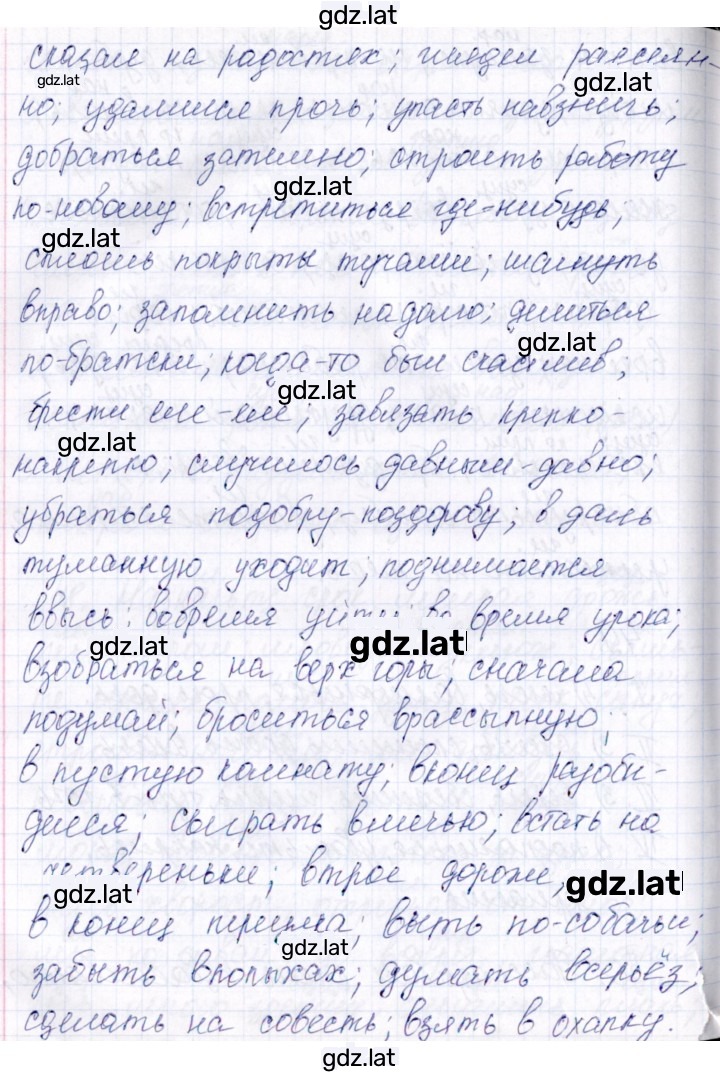 gdz.lat
сказал на радостях; глядел рассеян-
gdz.lat
gdz.lat
но; удалился прочь; упасть навзничь;
добраться затемно; строить работу
gdz.lat
по-новому; встретиться где-нибудь;
gdz.lat
сплошь покрыты тучами; шагнуть
вправо; запомнить надолго; делиться
gdz.lat
по-братски; когда-то был счастлив;
gdz.lat
брести еле-еле; завязать крепко-
gdz.lat
накрепко; случилось давным-давно;
убраться подобру-поздорову; в даль
туманную уходит; поднимается
ввысь; вовремя уйти; во время урока;
gdz.lat
gdz.lat
взобраться на верх горы; сначала
подумай; броситься врассыпную;
в пустую комнату; вконец разоби-
делся; сыграть вничью; встать на
четвереньки; втрое дороже,
gdz.lat
gdz.lat
в конец переулка; выть по-собачьи;
gdz.lat
забыть впопыхах; думать всерьёз;
сделать на совесть; взять в охапку.
gdz.lat